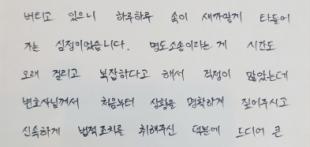 버리고 있으니 하루하루 속이 새까맣게 타들어
가는 심정이었습니다. 명도소송이라는 게 시간도
오래 걸리고 복잡하다고 해서 걱정이 많았는데
변호사님께서 처음부터 상황을 명확하게 짚어주시고
신속하게 법적조치를 취해주신 덕분에 드디어 큰